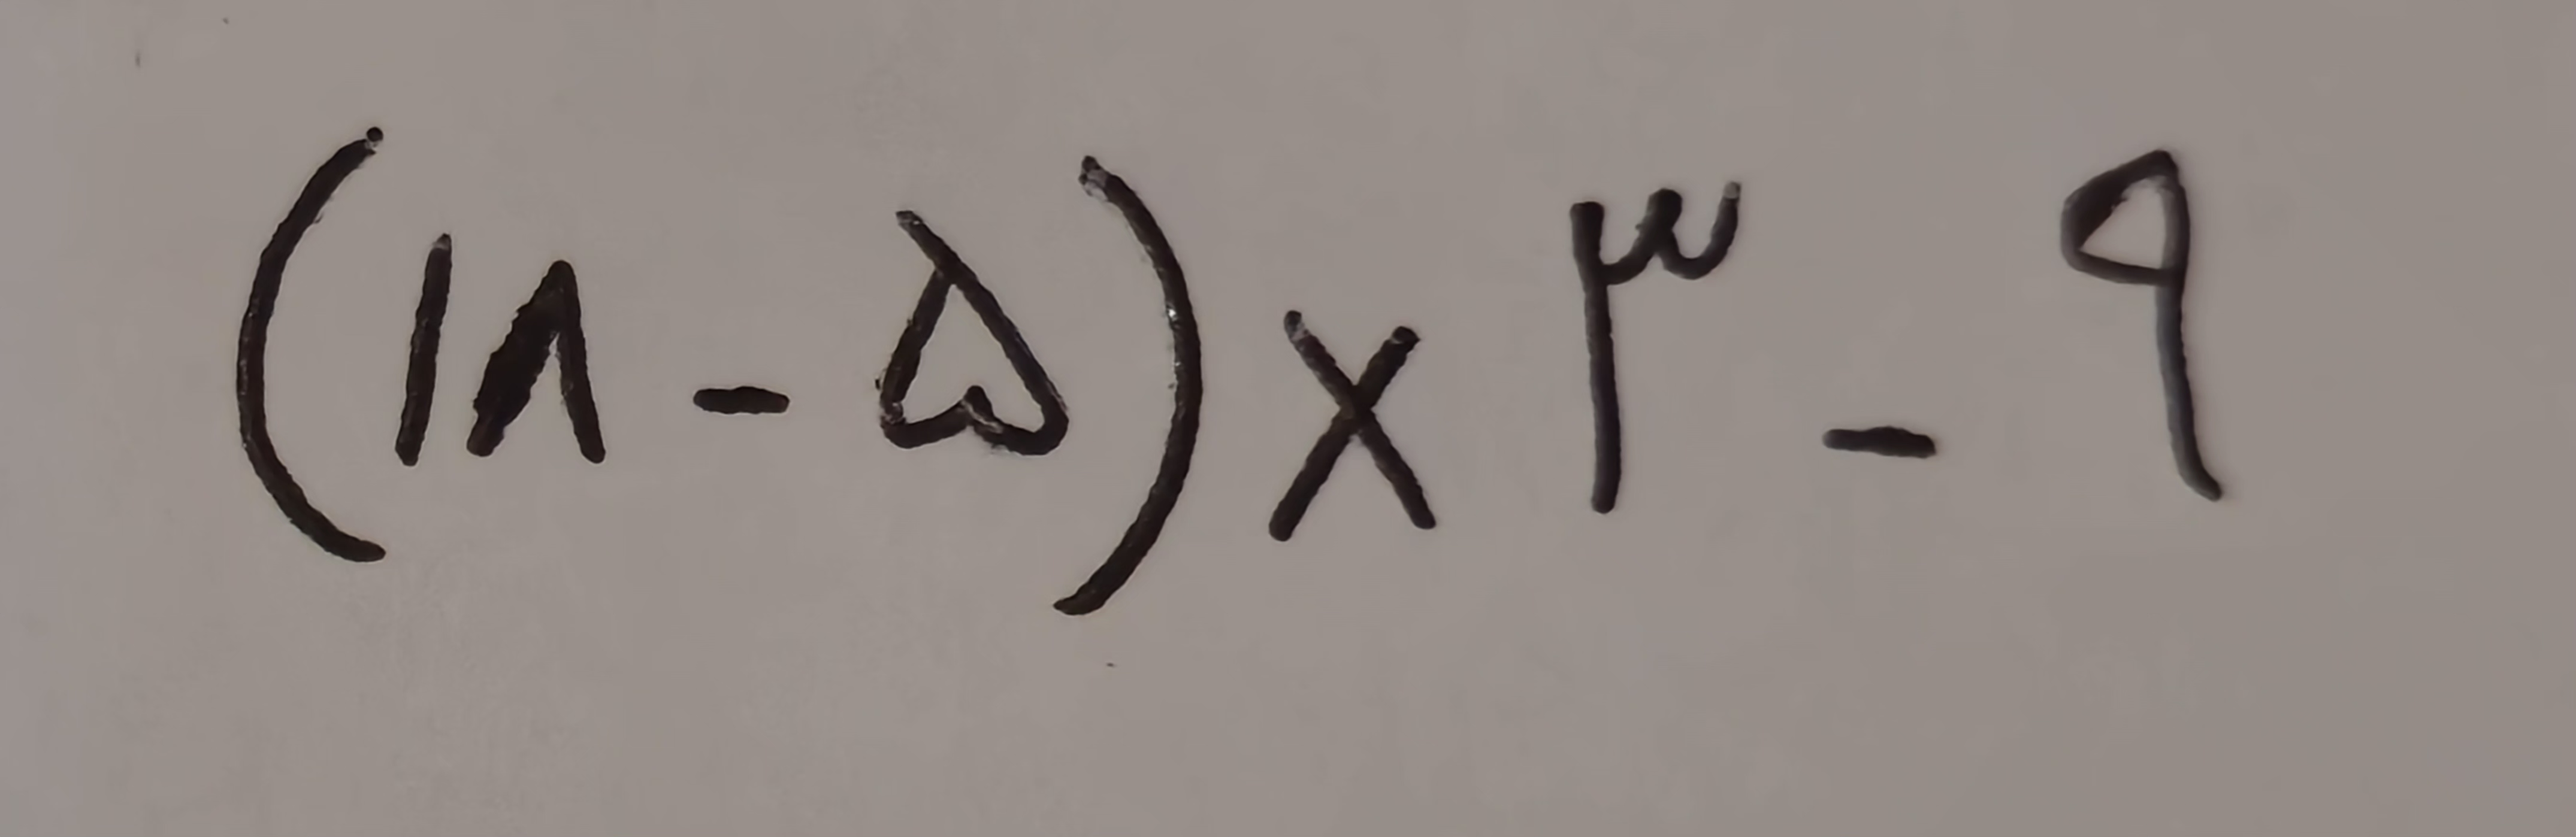 (۱۸ - ۵) × ۳ - ۹